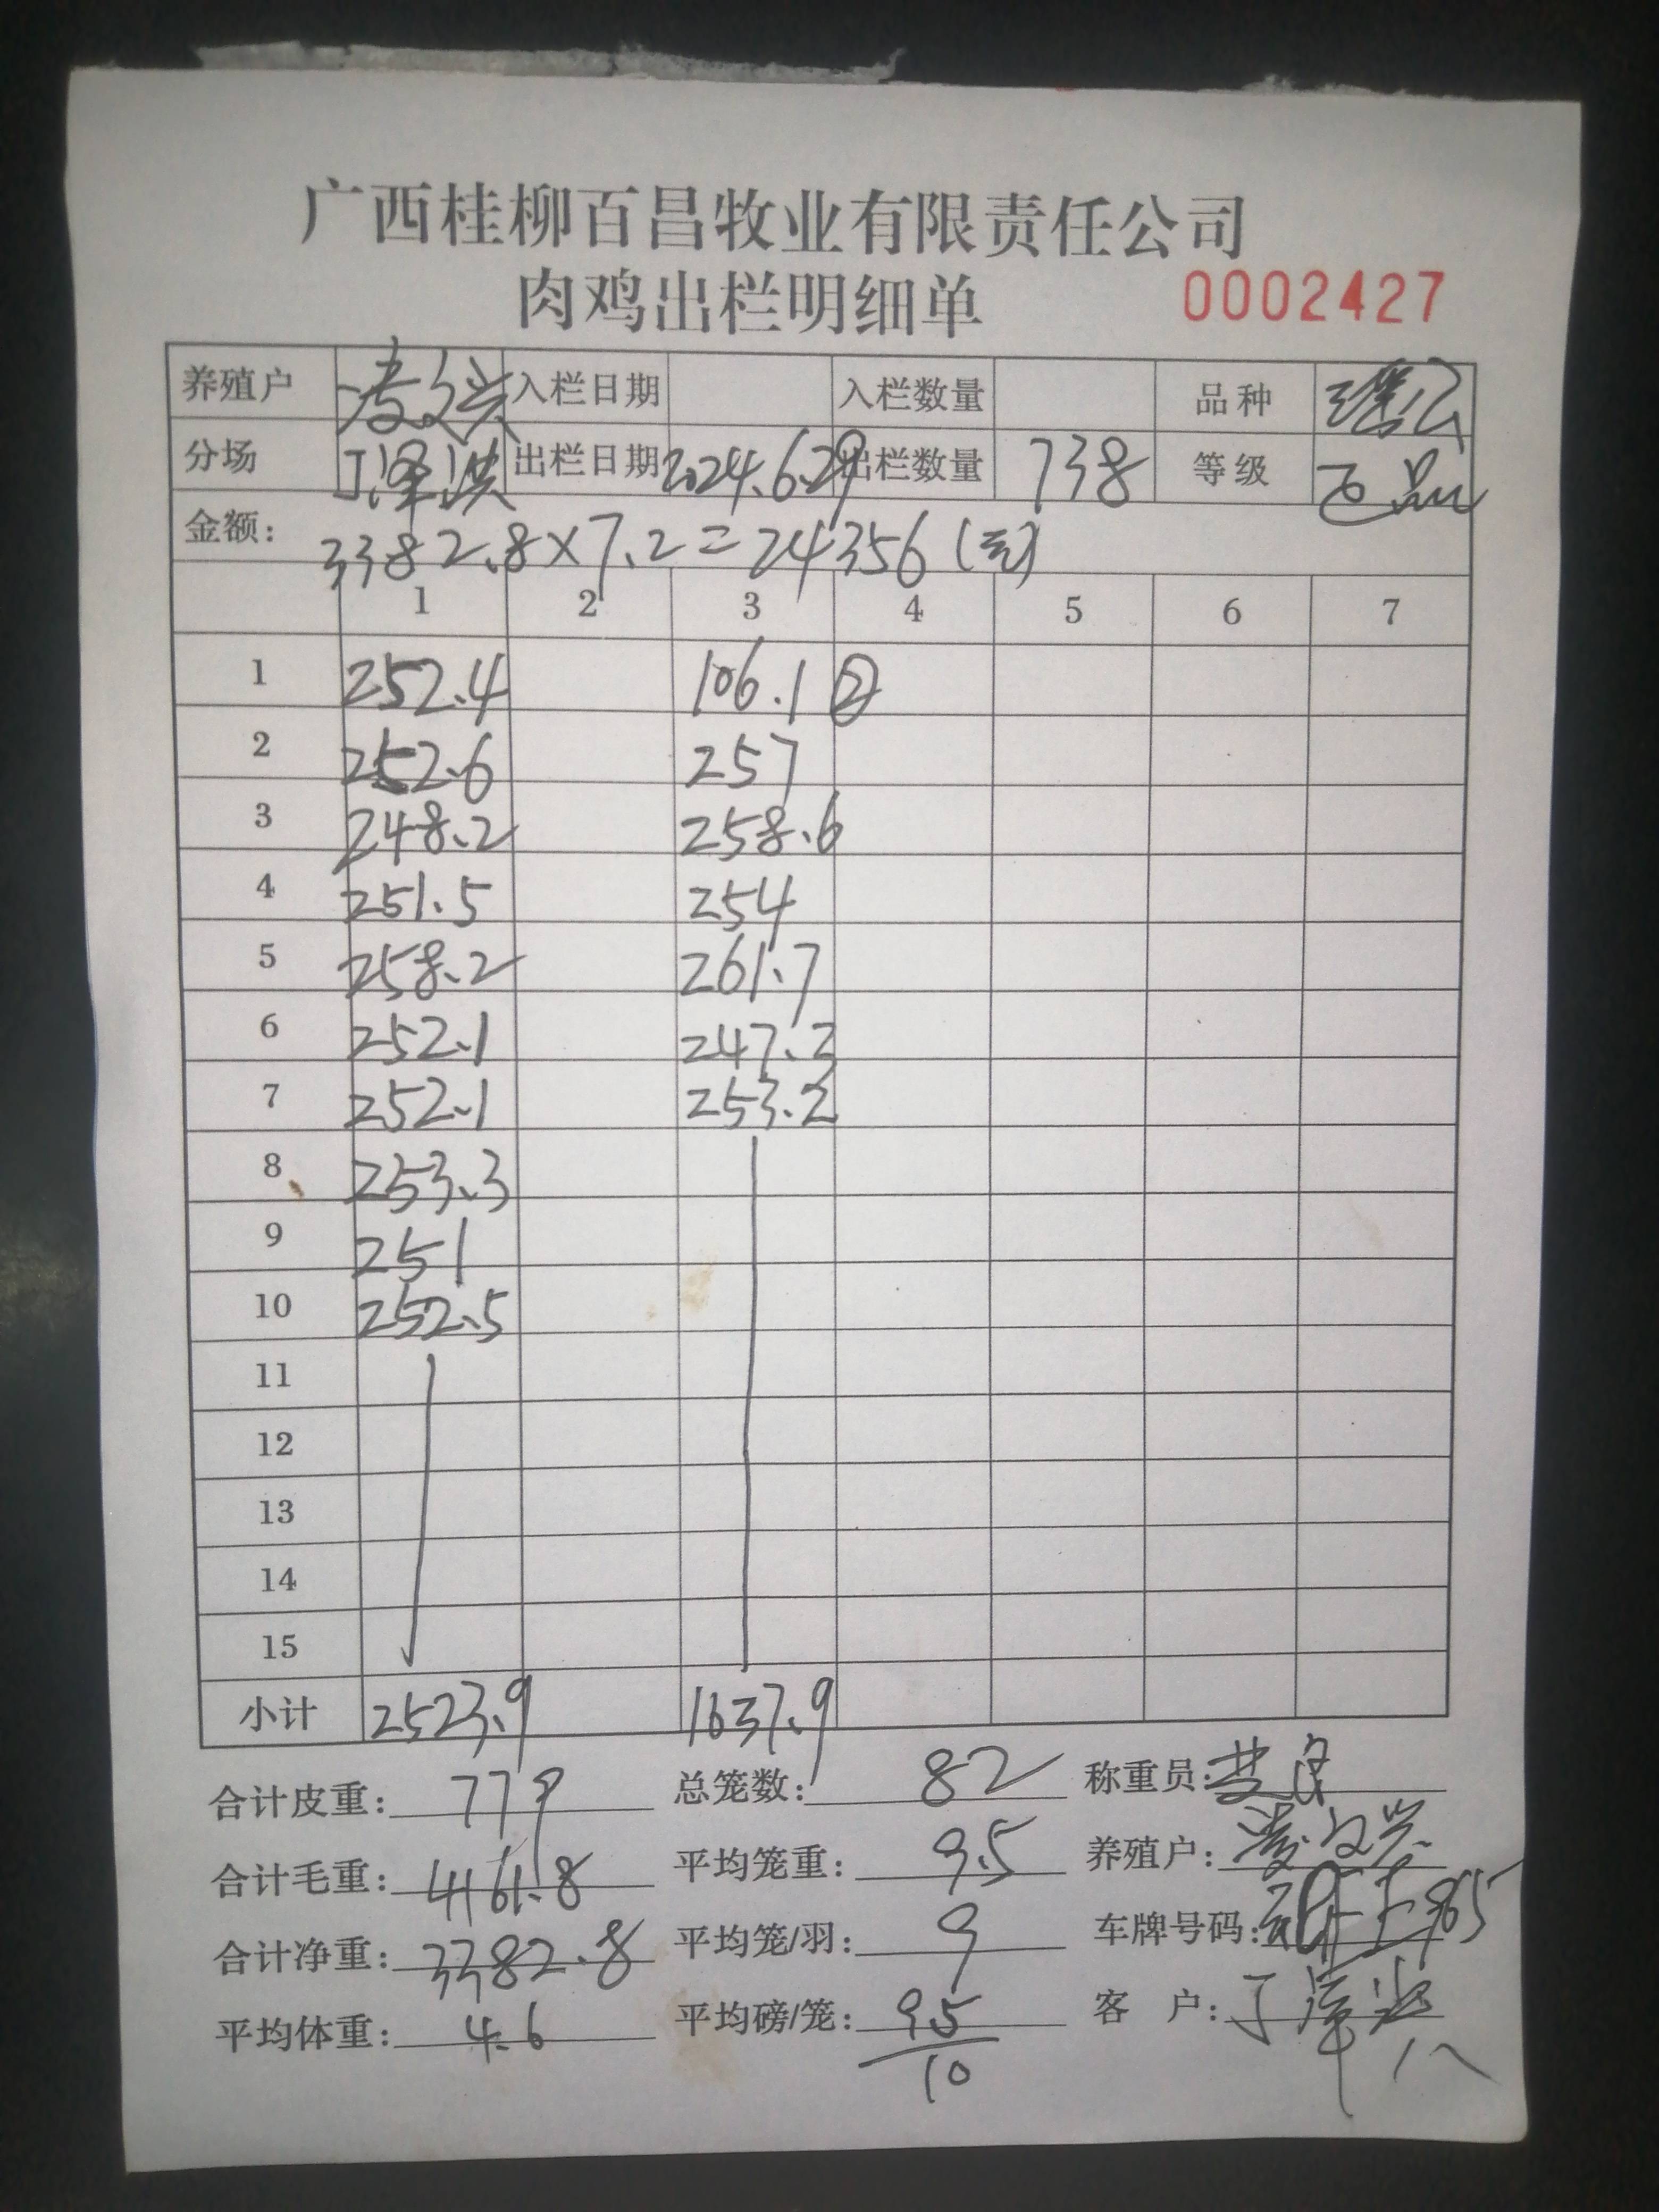 广西桂柳百昌牧业有限责任公司
肉鸡出栏明细单 0002427
养殖户 凌文兴 入栏日期 入栏数量 品种 瑶公
分场 丁泽洪 出栏日期 2024.6.29 出栏数量 738 等级 正品
金额: 3382.8×7.2=24356(元)
1 2 3 4 5 6 7
1 252.4 106.1 ②
2 252.6 257
3 248.2 258.6
4 251.5 254
5 258.2 261.7
6 252.1 247.3
7 252.1 253.2
8 253.3
9 251
10 252.5
11
12
13
14
15
小计 2523.9 1637.9
合计皮重: 779 总笼数: 82 称重员:
合计毛重: 4161.8 平均笼重: 9.5 养殖户: 凌文兴
合计净重: 3382.8 平均笼/羽: 9 车牌号码:
平均体重: 4.6 平均磅/笼: 95 客 户:
10